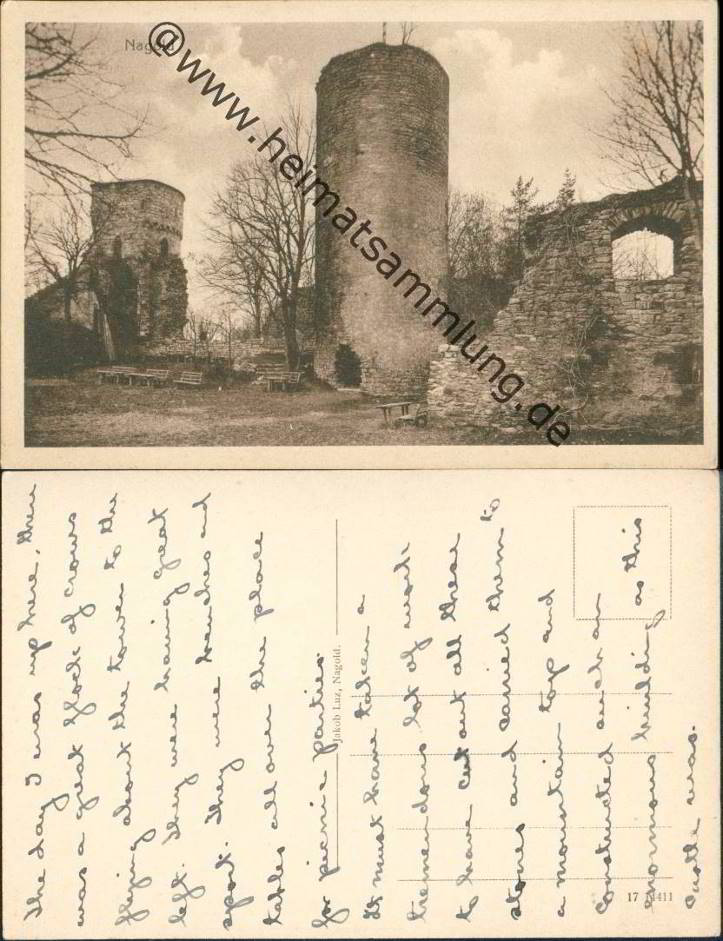 Nagold
@www.heimatsammlung.de
The day I was up here, there
was a great flock of crows
flying about the tower to the
left. They were having great
sport. They were benches and
tables all over the place
for picnic parties.
It must have taken a
tremendous lot of work
to have cut out all these
stones and carried them to
a mountain top and
constructed such an
enormous building as this
castle was.
Jakob Luz, Nagold.
17 14411